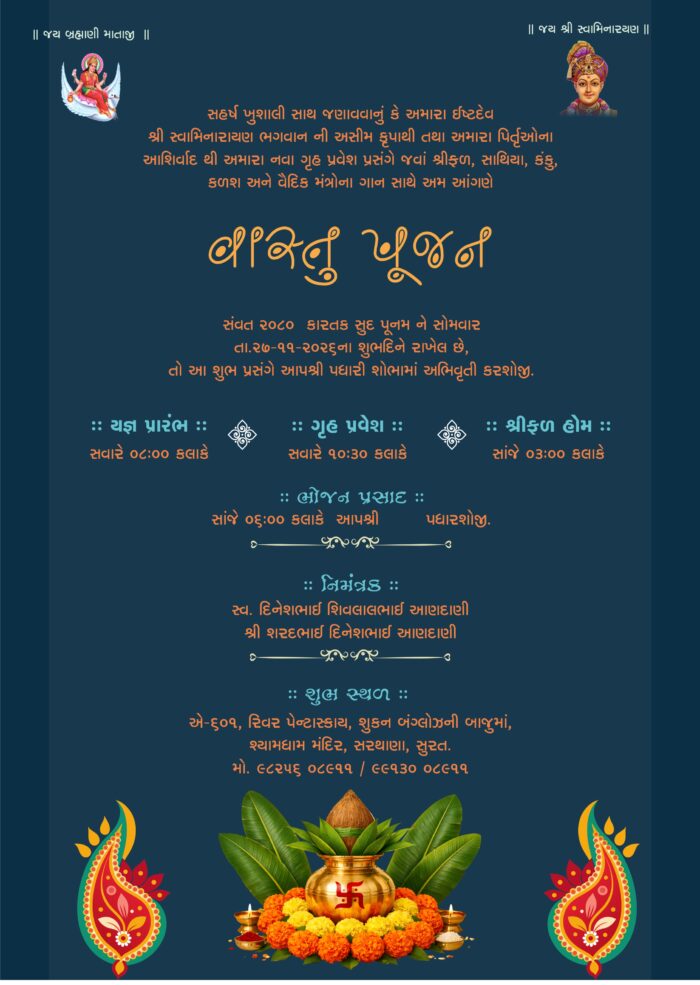 || જય બ્રહ્માણી માતાજી ||
|| જય શ્રી સ્વામિનારાયણ ||
સહર્ષ ખુશાલી સાથ જણાવવાનું કે અમારા ઈષ્ટદેવ
શ્રી સ્વામિનારાયણ ભગવાન ની અસીમ કૃપાથી તથા અમારા પિતૃઓના
આશિર્વાદ થી અમારા નવા ગૃહ પ્રવેશ પ્રસંગે જવાં શ્રીફળ, સાથિયા, કંકુ,
કળશ અને વૈદિક મંત્રોના ગાન સાથે અમ આંગણે
વાસ્તુ પૂજન
સંવત ૨૦૮૦ કારતક સુદ પૂનમ ને સોમવાર
તા.૨૭-૧૧-૨૦૨૬ના શુભદિને રાખેલ છે,
તો આ શુભ પ્રસંગે આપશ્રી પધારી શોભામાં અભિવૃતી કરશોજી.
:: યજ્ઞ પ્રારંભ ::
સવારે ૦૮:૦૦ કલાકે
:: ગૃહ પ્રવેશ ::
સવારે ૧૦:૩૦ કલાકે
:: શ્રીફળ હોમ ::
સાંજે ૦૩:૦૦ કલાકે
:: ભોજન પ્રસાદ ::
સાંજે ૦૬:૦૦ કલાકે આપશ્રી પધારશોજી.
:: નિમંત્રક ::
સ્વ. દિનેશભાઈ શિવલાલભાઈ આણદાણી
શ્રી શરદભાઈ દિનેશભાઈ આણદાણી
:: શુભ સ્થળ ::
એ-૬૦૧, રિવર પેન્ટાસ્કાય, શુકન બંગ્લોઝની બાજુમાં,
શ્યામધામ મંદિર, સરથાણા, સુરત.
મો. ૯૮૨૫૬ ૦૮૯૧૧ / ૯૯૧૩૦ ૦૮૯૧૧